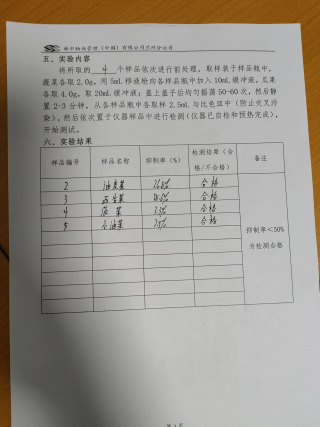 新中物业管理（中国）有限公司兰州分公司
五、实验内容
将所取的 4 个样品依次进行前处理，取样装于样品瓶中，
蔬菜各取 2.0g，用 5mL 移液枪向各样品瓶中加入 10mL 缓冲液，瓜果
各取 4.0g，取 20mL 缓冲液；盖上盖子后均匀摇荡 50-60 次，然后静
置 2-3 分钟，从各样品瓶中各取样 2.5mL 与比色皿中（防止交叉污
染），然后依次置于仪器样品中进行检测（仪器已自检和预热完成），
开始测试。
六、实验结果
样品编号 样品名称 抑制率（%） 检测结果（合格/不合格） 备注
2 油麦菜 合格
3 西生菜 合格
4 菠菜 合格
5 小油菜 合格
抑制率＜50%
为检测合格